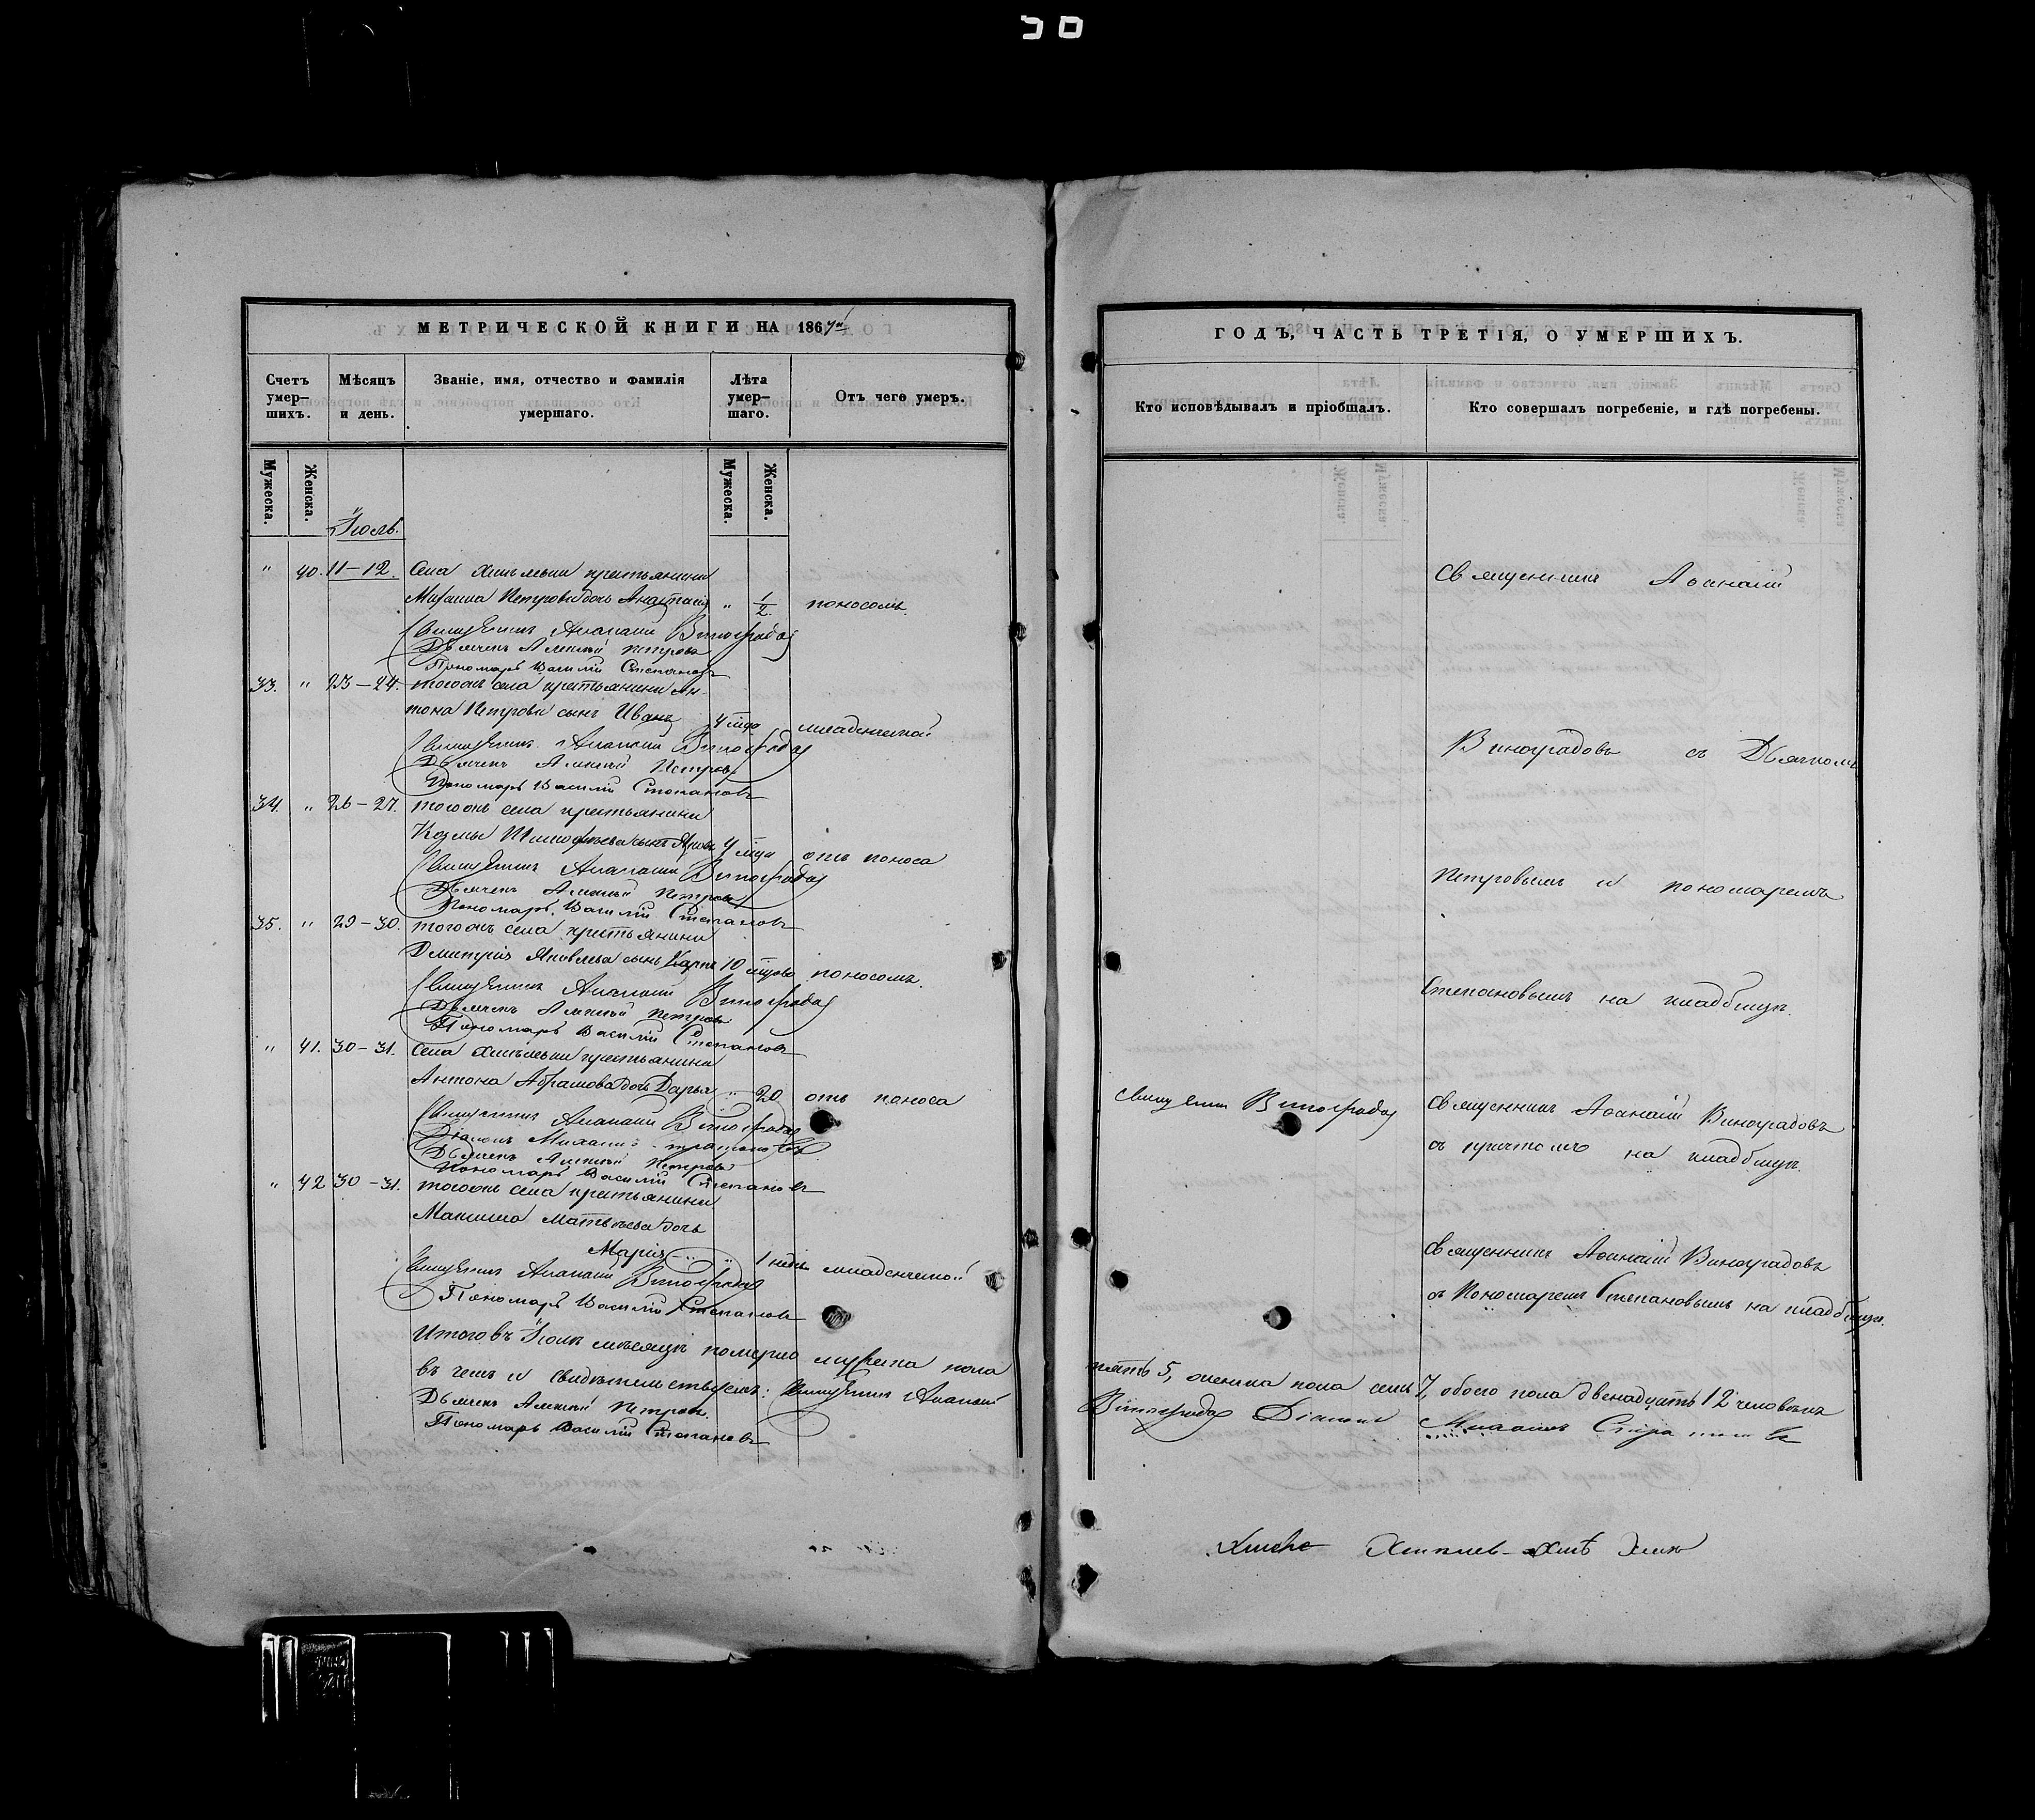 МЕТРИЧЕСКОЙ КНИГИ НА 1867й
Счетъ умер-шихъ.
Мѣсяцъ и день.
Званіе, имя, отчество и фамилія умершаго.
Лѣта умер-шаго.
Отъ чего умеръ.
Мужеска.
Женска.
Мужеска.
Женска.
Іюль.
" 40. 11-12. Села крестьянина
Михаила Петрова дочь Анастасія " 1/2. поносомъ.
Священникъ Аѳанасій Виноградовъ
Дьячекъ Алексѣй Петровъ
Пономарь Василій Степановъ
33. " 23-24. тогожъ села крестьянина Ан-
тона Петрова сынъ Иванъ 4 мца младенческой
Священникъ Аѳанасій Виноградовъ
Дьячекъ Алексѣй Петровъ
Пономарь Василій Степановъ
34. " 26-27. тогожъ села крестьянина
Козмы Тимофѣева сынъ Яковъ 4 мца отъ поноса
Священникъ Аѳанасій Виноградовъ
Дьячекъ Алексѣй Петровъ
Пономарь Василій Степановъ
35. " 29-30. тогожъ села крестьянина
Дмитрія Яковлева сынъ Карпъ 10 мцовъ поносомъ.
Священникъ Аѳанасій Виноградовъ
Дьячекъ Алексѣй Петровъ
Пономарь Василій Степановъ
" 41. 30-31. Села крестьянина
Антона Абрамова дочь Дарья " 20 отъ поноса
Священникъ Аѳанасій Виноградовъ
Діаконъ Михаилъ
Дьячекъ Алексѣй Петровъ
Пономарь Василій Степановъ
" 42 30-31. тогожъ села крестьянина
Максима Матвѣева дочь
Марія " 1 недѣл младенческой
Священникъ Аѳанасій Виноградовъ
Пономарь Василій Степановъ
Итого въ Іюлѣ мѣсяцѣ померло мужеска пола
въ чемъ и свидѣтельствуемъ: Священникъ Аѳанасій
Дьячекъ Алексѣй Петровъ.
Пономарь Василій Степановъ
ГОДЪ, ЧАСТЬ ТРЕТІЯ, О УМЕРШИХЪ.
Кто исповѣдывалъ и пріобщалъ.
Кто совершалъ погребеніе, и гдѣ погребены.
Священникъ Аѳанасій
Виноградовъ съ Дьячкомъ
Петровымъ и пономаремъ
Степановымъ на кладбищѣ.
Священникъ Виноградовъ
Священникъ Аѳанасій Виноградовъ
съ причтомъ на кладбищѣ.
Священникъ Аѳанасій Виноградовъ
съ Пономаремъ Степановымъ на кладбищѣ.
пять 5, женска пола семь 7, обоего пола двенадцать 12 человѣкъ
Виноградовъ Діаконъ Михаилъ